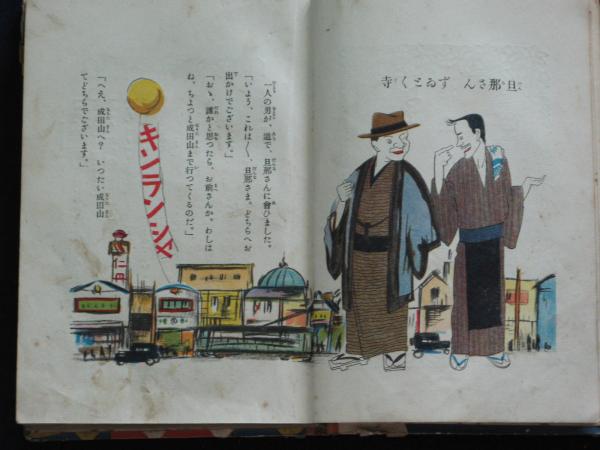 旦那さん ずゐとく寺
一人の男が、道で、旦那さんに會ひました。
「いよう、これは〳〵、旦那さま。どちらへお
出かけでございます。」
「おゝ、誰かと思つたら、お前さんか。わしは
ね、ちよつと成田山まで行つてくるのだ。」
「へえ、成田山へ？ いつたい成田山
てどちらでございます。」
キンランジャ
仁丹